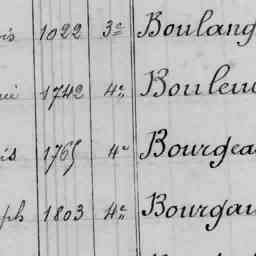 is 1022 3e Boulang
1742 4e Bouleu
is 1765 4e Bourgea
ph 1803 4e Bourgau